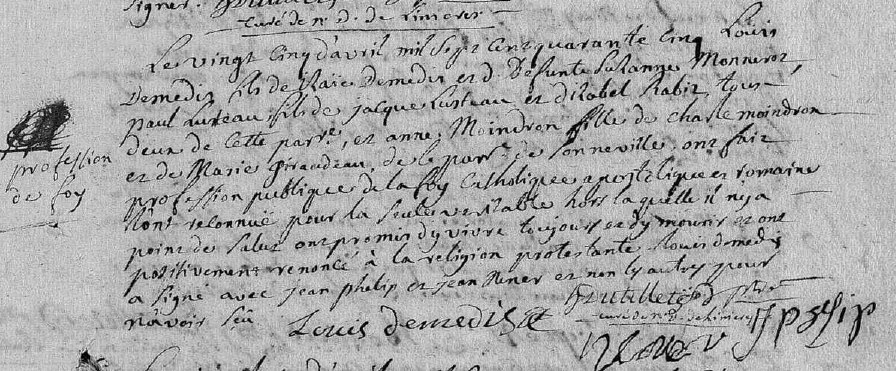 signer.
curé de n. d. de Linieres
Le vingt cinq d'avril mil sept cent quarante cinq Louis
Demedis fils de Demedis et d. Defunte Suzanne Monnerot,
paul Lusteau fils de jacque Lusteau et d'Isabel Rabiz tous
deux de cette parr.e, et anne Moindron fille de charle moindron
et de Marie Giraudeau, de le parr. de Sonneville ont fait
profession publique de la foy Catholique apostolique et romaine
l'ont reconnuë pour la seule veritable hors laquelle il ny a
point de salut ont promis dy vivre toujours et dy mourir et ont
positivement renoncé à la religion protestante Louis demedis
a signé avec jean phelip et jean et non les autres pour
n'avoir sçu
profession
de foy
Louis demedis
curé de n. d. de linieres